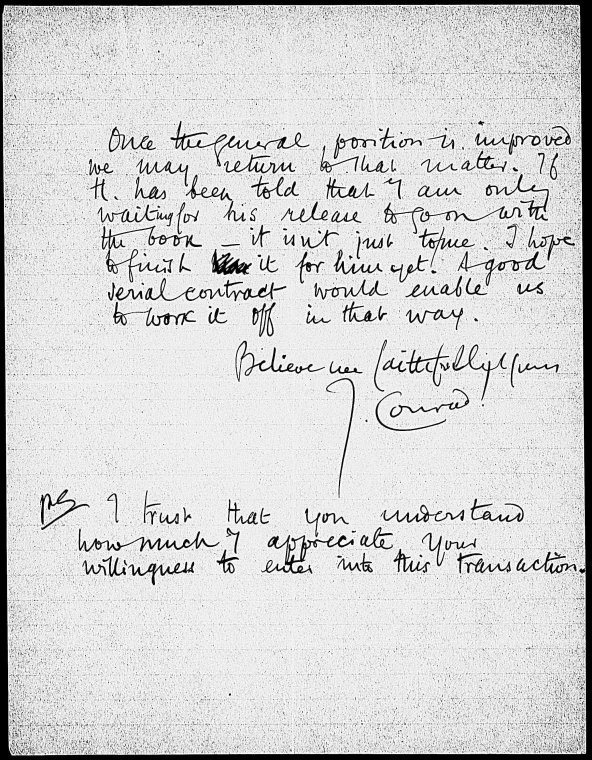 Once the general, position is improved
we may return to that matter. If
H. has been told that I am only
waiting for his release to go on with
the book – it isn't just to me. I hope
to finish it for him yet. A good
serial contract would enable us
to work it off in that way.
Believe me faithfully yours
J. Conrad.
PS I trust that you understand
how much I appreciate your
willingness to enter into this transaction.